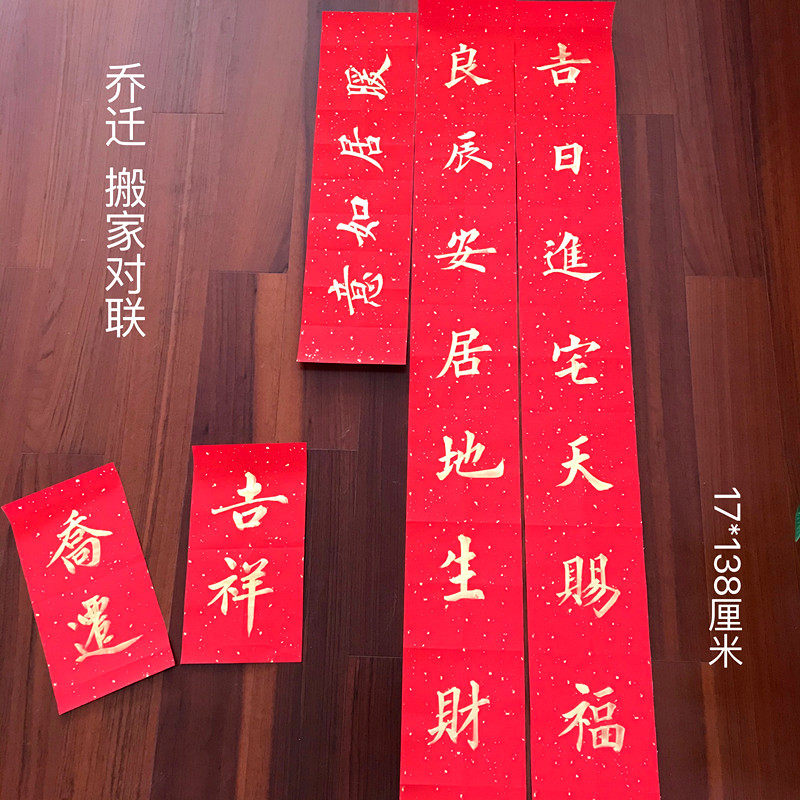 乔迁 搬家对联
吉日進宅天賜福
良辰安居地生財
暖居如意
喬遷
吉祥
17*138厘米